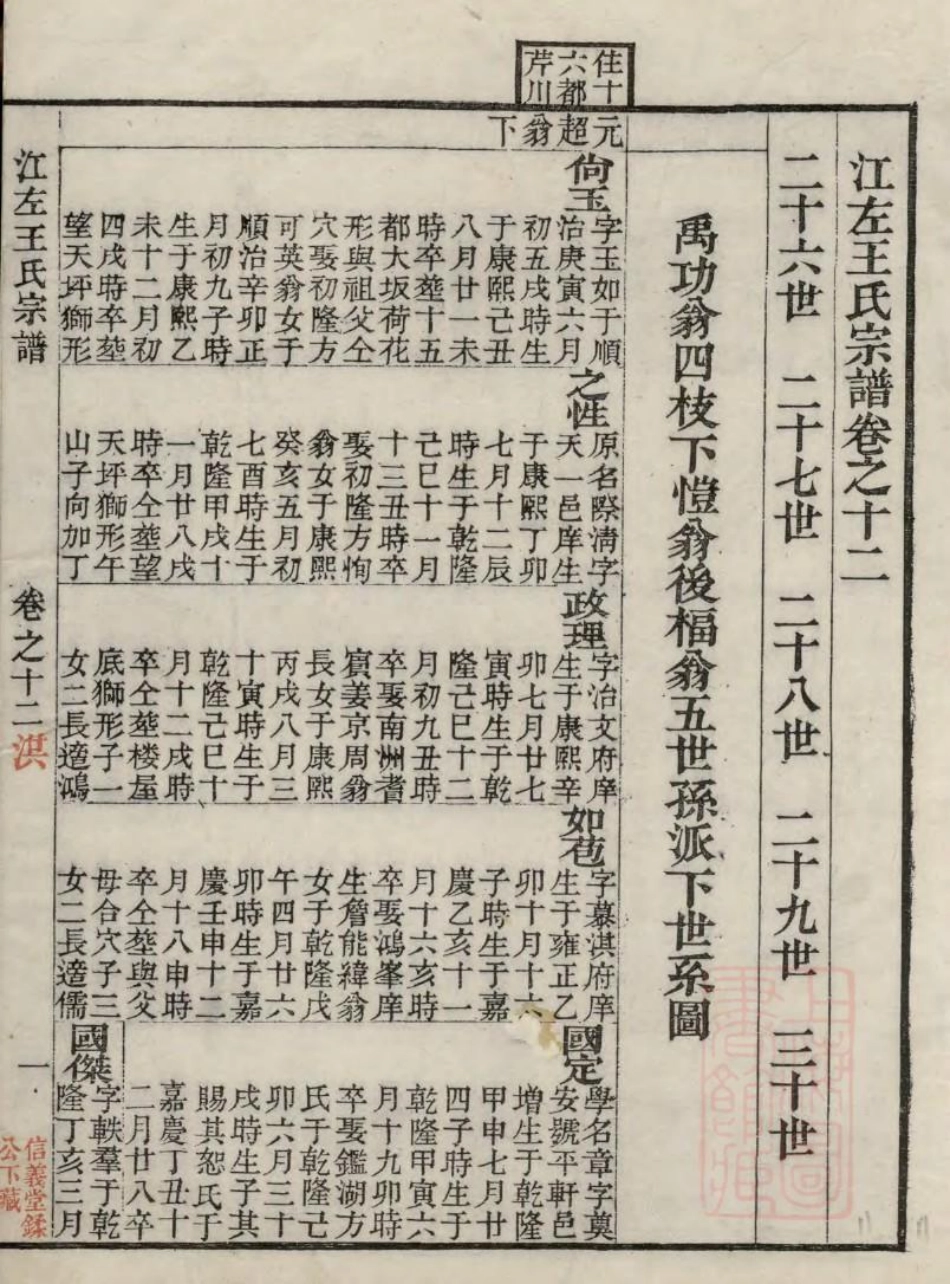 江左王氏宗譜卷之十二
二十六世 二十七世 二十八世 二十九世 三十世
禹功翁四枝下愷翁後福翁五世孫派下世系圖
住十
六都
芹川
元超翁下
尙玉
字玉如于順
治庚寅六月
初五戌時生
于康熙己丑
八月廿一未
時卒塟十五
都大坂荷花
形與祖父仝
穴娶初隆方
可英翁女于
順治辛卯正
月初九子時
生于康熙乙
未十二月初
四戌時卒塟
望天坪獅形
之性
原名際清字
天一邑庠生
于康熙丁卯
七月十二辰
時生于乾隆
己巳十一月
十三丑時卒
娶初隆方恂
翁女于康熙
癸亥五月初
七酉時生于
乾隆甲戌十
一月廿八戌
時卒仝塟望
天坪獅形午
山子向加丁
政理
字治文府庠
生于康熙辛
卯七月廿七
寅時生于乾
隆己巳十二
月初九丑時
卒娶南洲耆
賔姜京周翁
長女于康熙
丙戌八月三
十寅時生于
乾隆己巳十
月十二戌時
卒仝塟楼屋
底獅形子一
女二長適鴻
如苞
字慕淇府庠
生于雍正乙
卯十月十六
子時生于嘉
慶乙亥十一
月十六亥時
卒娶鴻峯庠
生詹能緯翁
女于乾隆戊
午四月廿六
卯時生于嘉
慶壬申十二
月十八申時
卒仝塟與父
母合穴子三
女二長適儒
國定
學名章字奠
安號平軒邑
增生于乾隆
甲申七月廿
四子時生于
乾隆甲寅六
月十九卯時
卒娶鑑湖方
氏于乾隆己
卯六月三十
戌時生子其
賜其恕氏于
嘉慶丁丑十
二月廿八卒
國傑
字軼羣于乾
隆丁亥三月
江左王氏宗譜
卷之十二
淇
一
信義堂鍒
公下藏